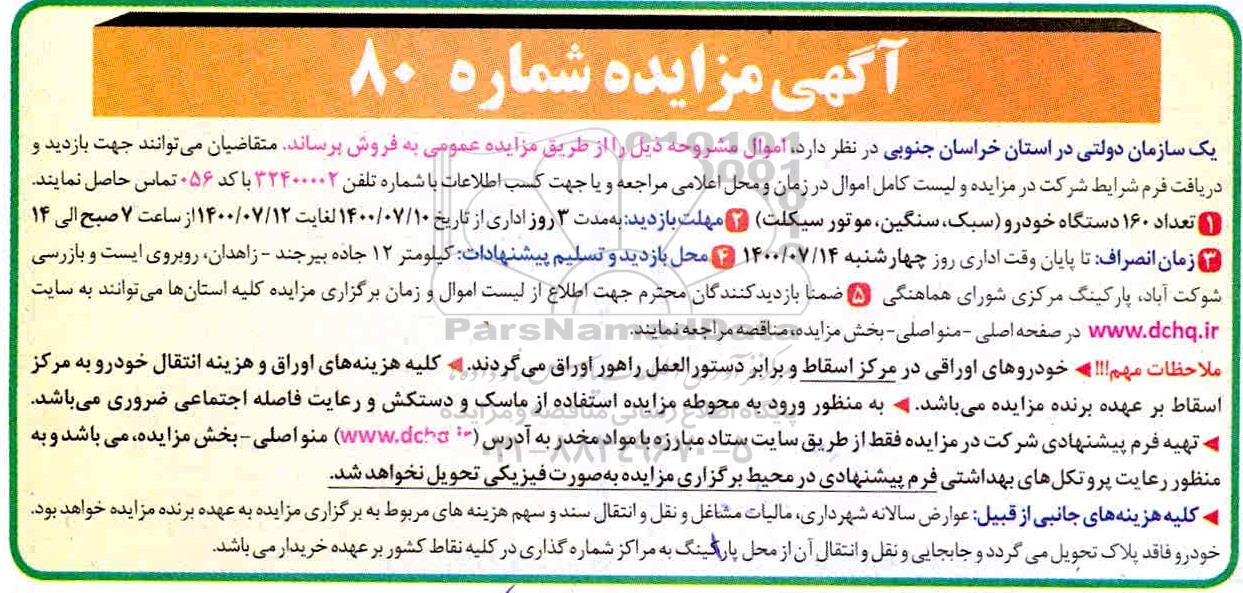 آگهی مزایده شماره ۸۰
یک سازمان دولتی در استان خراسان جنوبی در نظر دارد، اموال مشروحه ذیل را از طریق مزایده عمومی به فروش برساند. متقاضیان می‌توانند جهت بازدید و
دریافت فرم شرایط شرکت در مزایده و لیست کامل اموال در زمان و محل اعلامی مراجعه و یا جهت کسب اطلاعات با شماره تلفن ۳۲۴۰۰۰۰۲ با کد ۰۵۶ تماس حاصل نمایند.
۱ تعداد ۱۶۰ دستگاه خودرو (سبک، سنگین، موتور سیکلت) ۲ مهلت بازدید: به‌مدت ۳ روز اداری از تاریخ ۱۴۰۰/۰۷/۱۰ لغایت ۱۴۰۰/۰۷/۱۲ از ساعت ۷ صبح الی ۱۴
۳ زمان انصراف: تا پایان وقت اداری روز چهارشنبه ۱۴۰۰/۰۷/۱۴ ۴ محل بازدید و تسلیم پیشنهادات: کیلومتر ۱۲ جاده بیرجند - زاهدان، روبروی ایست و بازرسی
شوکت آباد، پارکینگ مرکزی شورای هماهنگی ۵ ضمنا بازدیدکنندگان محترم جهت اطلاع از لیست اموال و زمان برگزاری مزایده کلیه استان‌ها می‌توانند به سایت
www.dchq.ir در صفحه اصلی -منو اصلی-بخش مزایده، مناقصه مراجعه نمایند.
ملاحظات مهم!!! ◄ خودروهای اوراقی در مرکز اسقاط و برابر دستورالعمل راهور اوراق می‌گردند. ◄ کلیه هزینه‌های اوراق و هزینه انتقال خودرو به مرکز
اسقاط بر عهده برنده مزایده می‌باشد. ◄ به منظور ورود به محوطه مزایده استفاده از ماسک و دستکش و رعایت فاصله اجتماعی ضروری می‌باشد.
◄ تهیه فرم پیشنهادی شرکت در مزایده فقط از طریق سایت ستاد مبارزه با مواد مخدر به آدرس (www.dchq.ir) منو اصلی-بخش مزایده، می باشد و به
منظور رعایت پروتکل‌های بهداشتی فرم پیشنهادی در محیط برگزاری مزایده به‌صورت فیزیکی تحویل نخواهد شد.
◄ کلیه هزینه‌های جانبی از قبیل: عوارض سالانه شهرداری، مالیات مشاغل و نقل و انتقال سند و سهم هزینه های مربوط به برگزاری مزایده به عهده برنده مزایده خواهد بود.
خودرو فاقد پلاک تحویل می گردد و جابجایی و نقل و انتقال آن از محل پارکینگ به مراکز شماره گذاری در کلیه نقاط کشور بر عهده خریدار می باشد.
ParsNamadData
پایگاه اطلاع رسانی مناقصه و مزایده
۰۲۱-۸۸۳۴۹۶۷۰-۵